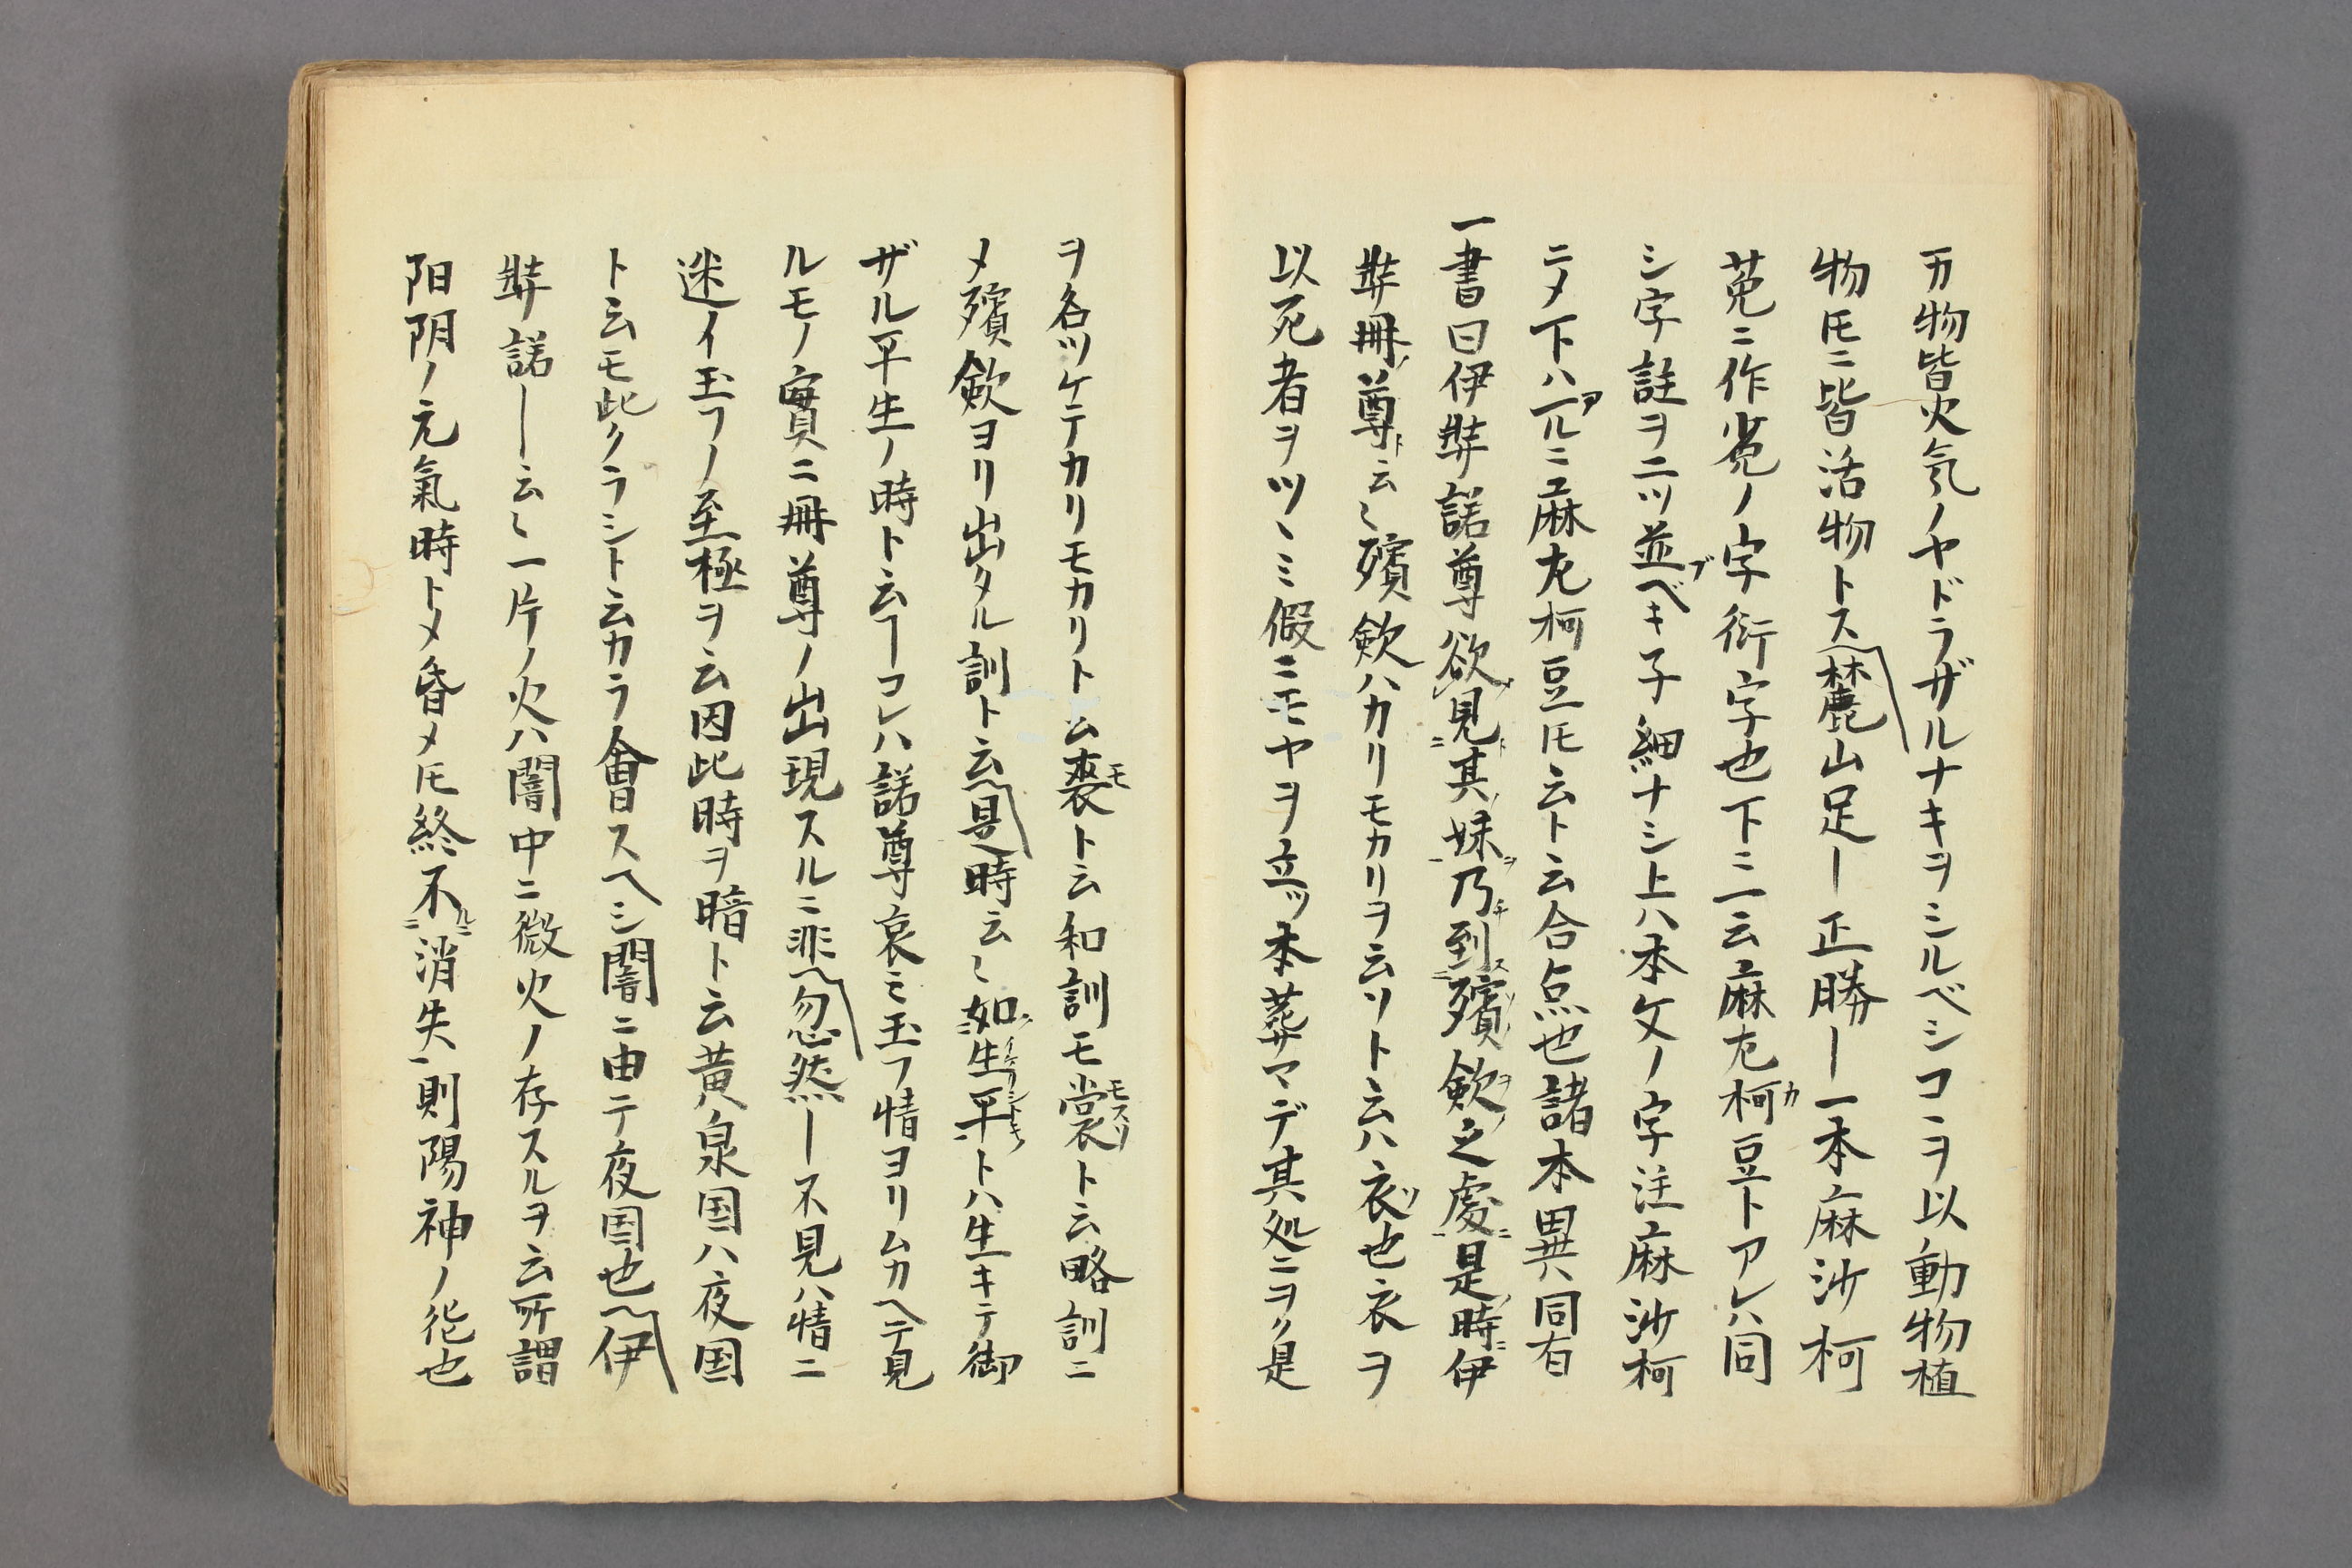 万物皆火気ノヤドラザルナキヲシルベシコヽヲ以動物植
物ﾄﾓニ皆活物トス麓山足ー正勝ー一本麻沙柯
菟ニ作菟ノ字衍字也下ニ一云麻左柯豆トアレハ同
シ字註ヲ二ツ並ベキ子細ナシ上ハ本文ノ字注麻沙柯
ニメ下ハ一ルニ麻左柯豆ﾄﾓ云ト云合点也諸本異同有
一書曰伊弉諾尊欲見其妹乃到殯斂之處是時伊
弉冊尊云〻殯斂ハカリモカリヲ云ソト云ハ衣也衣ヲ
以死者ヲツヽミ假ニモヤヲ立ツ本葬マデ其処ニヲリ是
ヲ名ツケテカリモカリト云裳ト云和訓モ裳ト云略訓ニ
メ殯斂ヨリ出タル訓ト云是時云〻如生平トハ生キテ御
ザル平生ノ時ト云ーコレハ諾尊哀ミ玉フ情ヨリムカヘテ見
ルモノ實ニ冊尊ノ出現スルニ非忽然ー不見ハ情ニ
迷イ玉フノ至極ヲ云因此時ヲ暗ト云黄泉国ハ夜国
ト云モ此クラシト云カラ會スヘシ闇ニ由テ夜国也伊
弉諾ー云〻一片ノ火ハ闇中ニ微火ノ存スルヲ云所謂
阳阴ノ元氣時トメ昏メﾄﾓ終不消失則陽神ノ化也